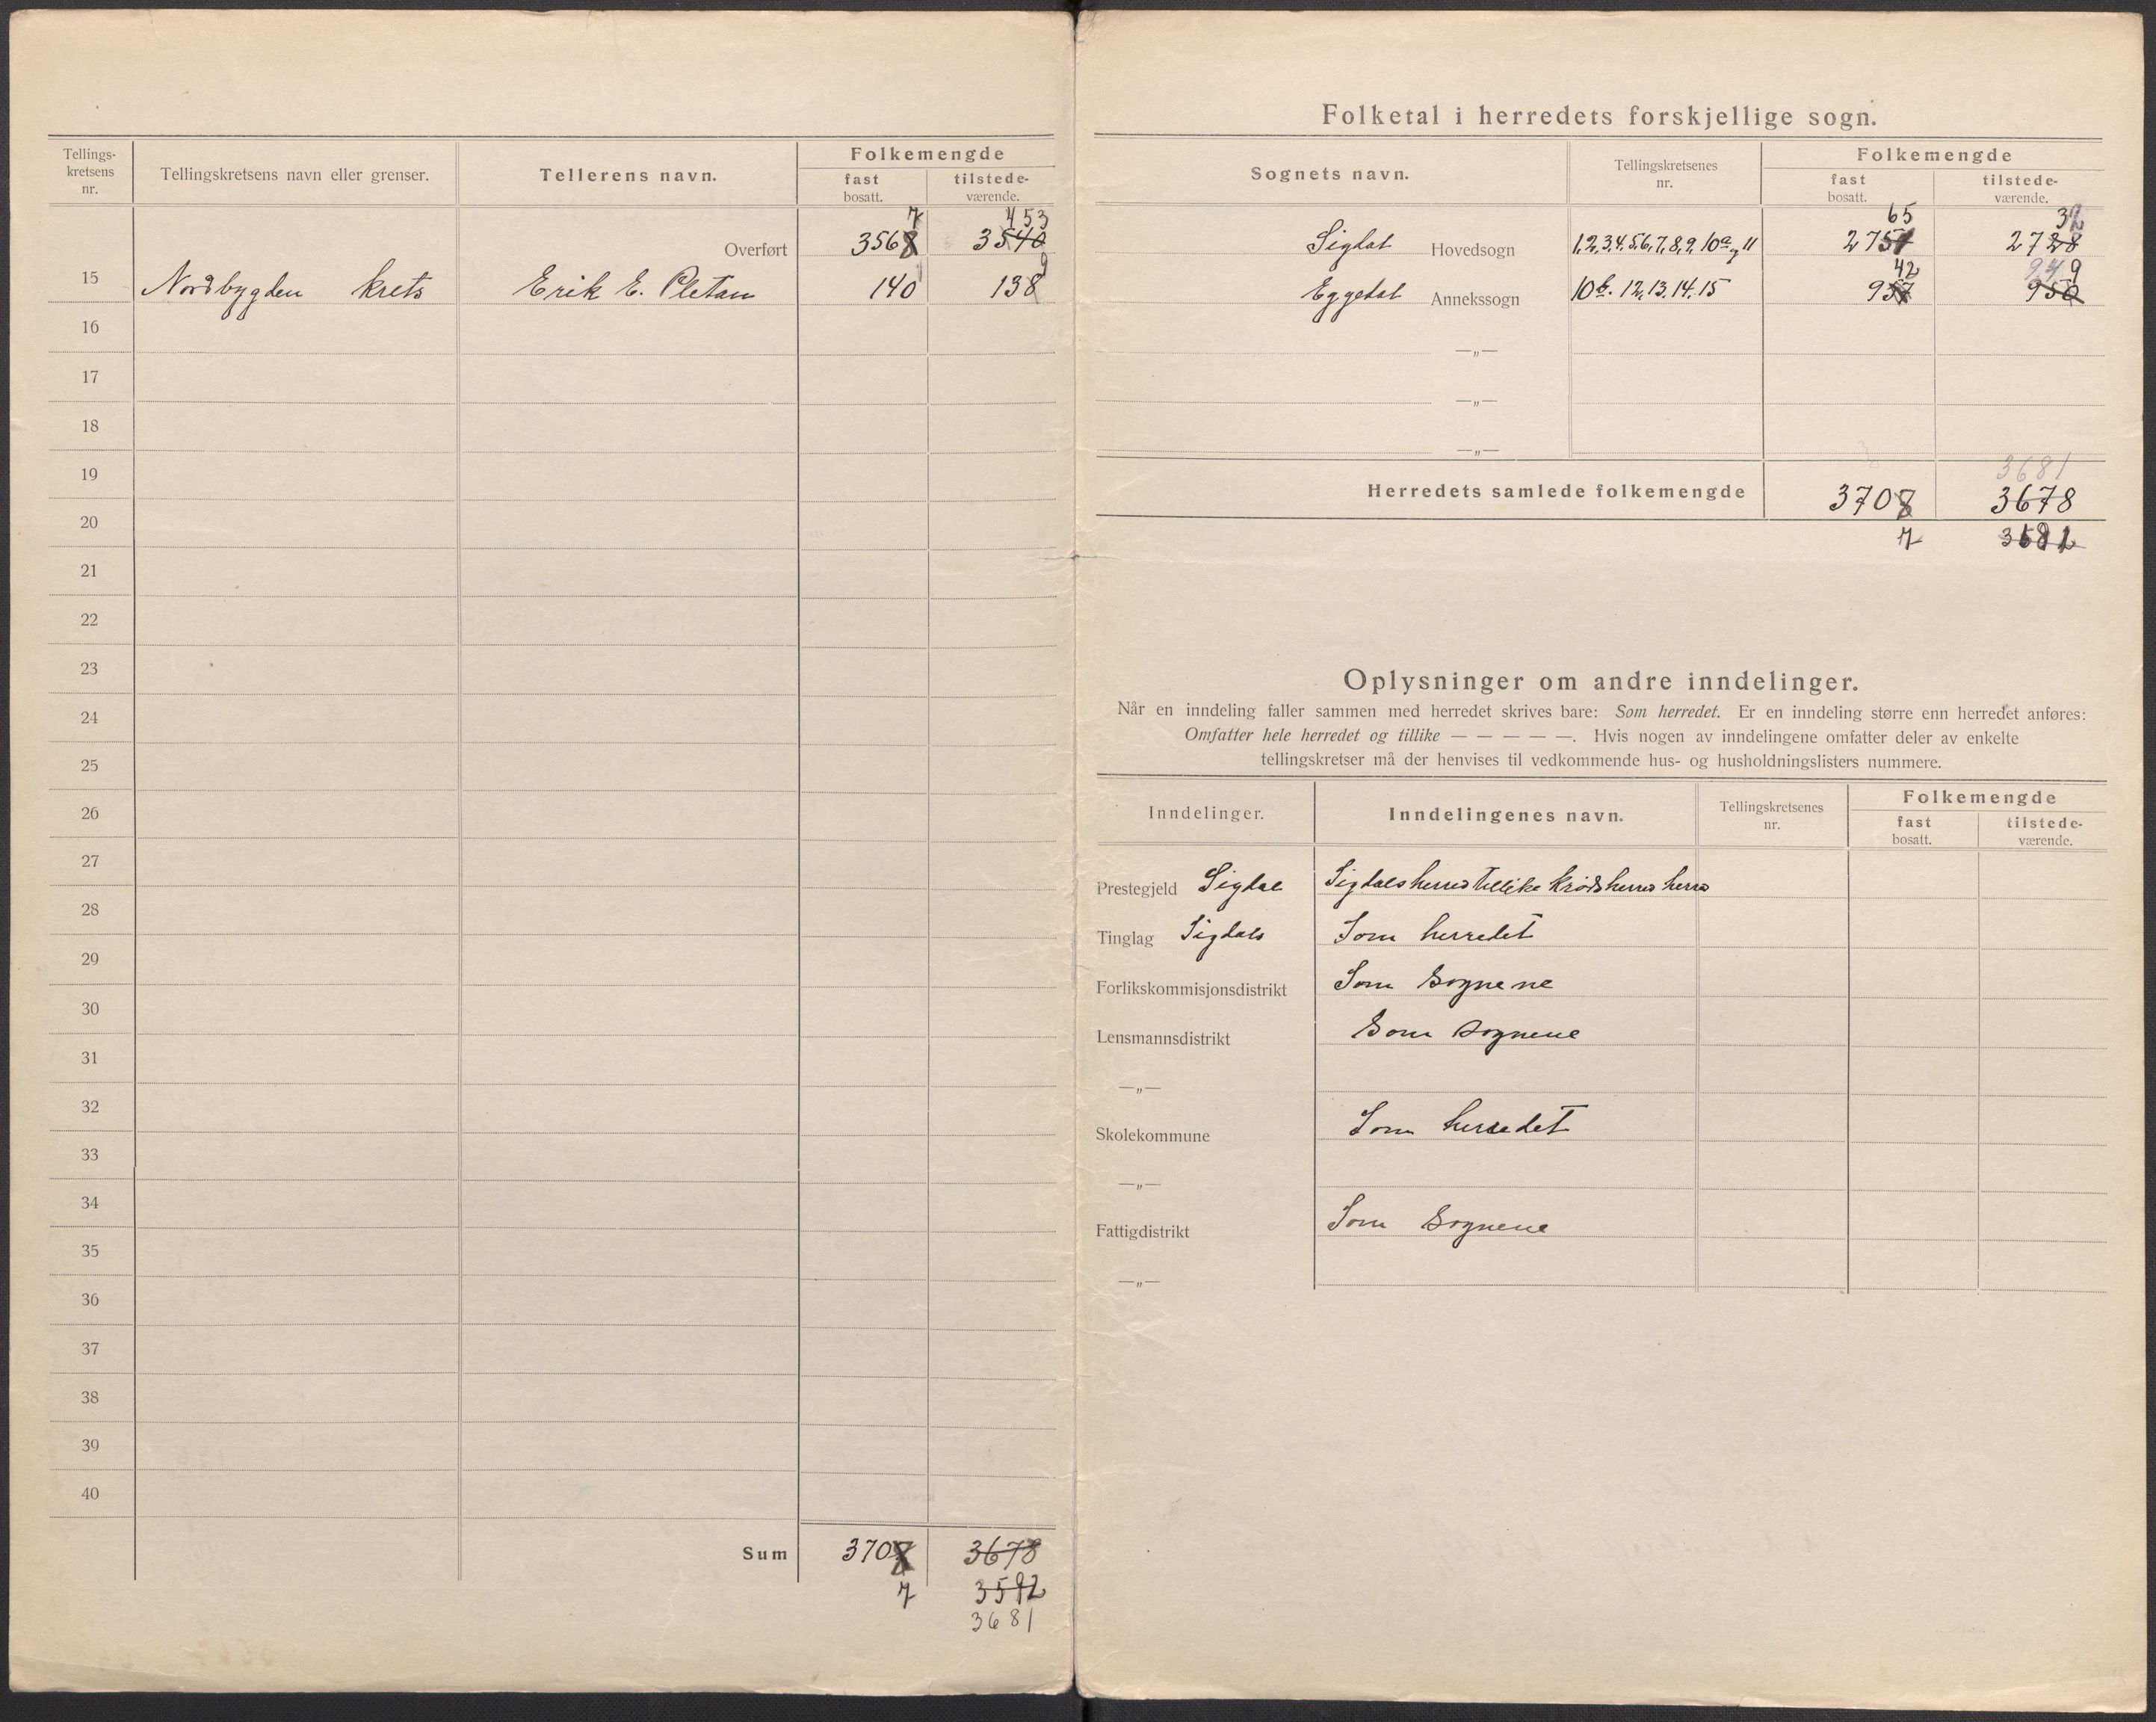 Tellings-
kretsens
nr.
Tellingskretsens navn eller grenser.
Tellerens navn.
Folkemengde
fast
bosatt.
tilstede-
værende.
7 453
Overført 3568 3540
9
15 Nordbygden krets Erik E. Pletan 140 138
16
17
18
19
20
21
22
23
24
25
26
27
28
29
30
31
32
33
34
35
36
37
38
39
40
Sum 3708 3678
7 3592
3681
Folketal i herredets forskjellige sogn.
Sognets navn.
Tellingskretsenes
nr.
Folkemengde
fast
bosatt.
tilstede-
værende.
65 32
Sigdal Hovedsogn 1,2,3,4,5,6,7,8,9,10a og 11 2751 2728
42 949
Eggedal Annekssogn 10b. 12,13.14.15 957 950
—„—
—„—
—„—
3681
Herredets samlede folkemengde 3708 3678
7
Oplysninger om andre inndelinger.
Når en inndeling faller sammen med herredet skrives bare: Som herredet. Er en inndeling større enn herredet anføres:
Omfatter hele herredet og tillike — — — — —. Hvis nogen av inndelingene omfatter deler av enkelte
tellingskretser må der henvises til vedkommende hus- og husholdningslisters nummere.
Inndelinger.
Inndelingenes navn.
Tellingskretsenes
nr.
Folkemengde
fast
bosatt.
tilstede-
værende.
Prestegjeld Sigdal Sigdals herred tillike Krødsherred herred
Tinglag Sigdals Som herredet
Forlikskommisjonsdistrikt Som Sognene
Lensmannsdistrikt Som Sognene
—„—
Skolekommune Som herredet
—„—
Fattigdistrikt Som Sognene
—„—